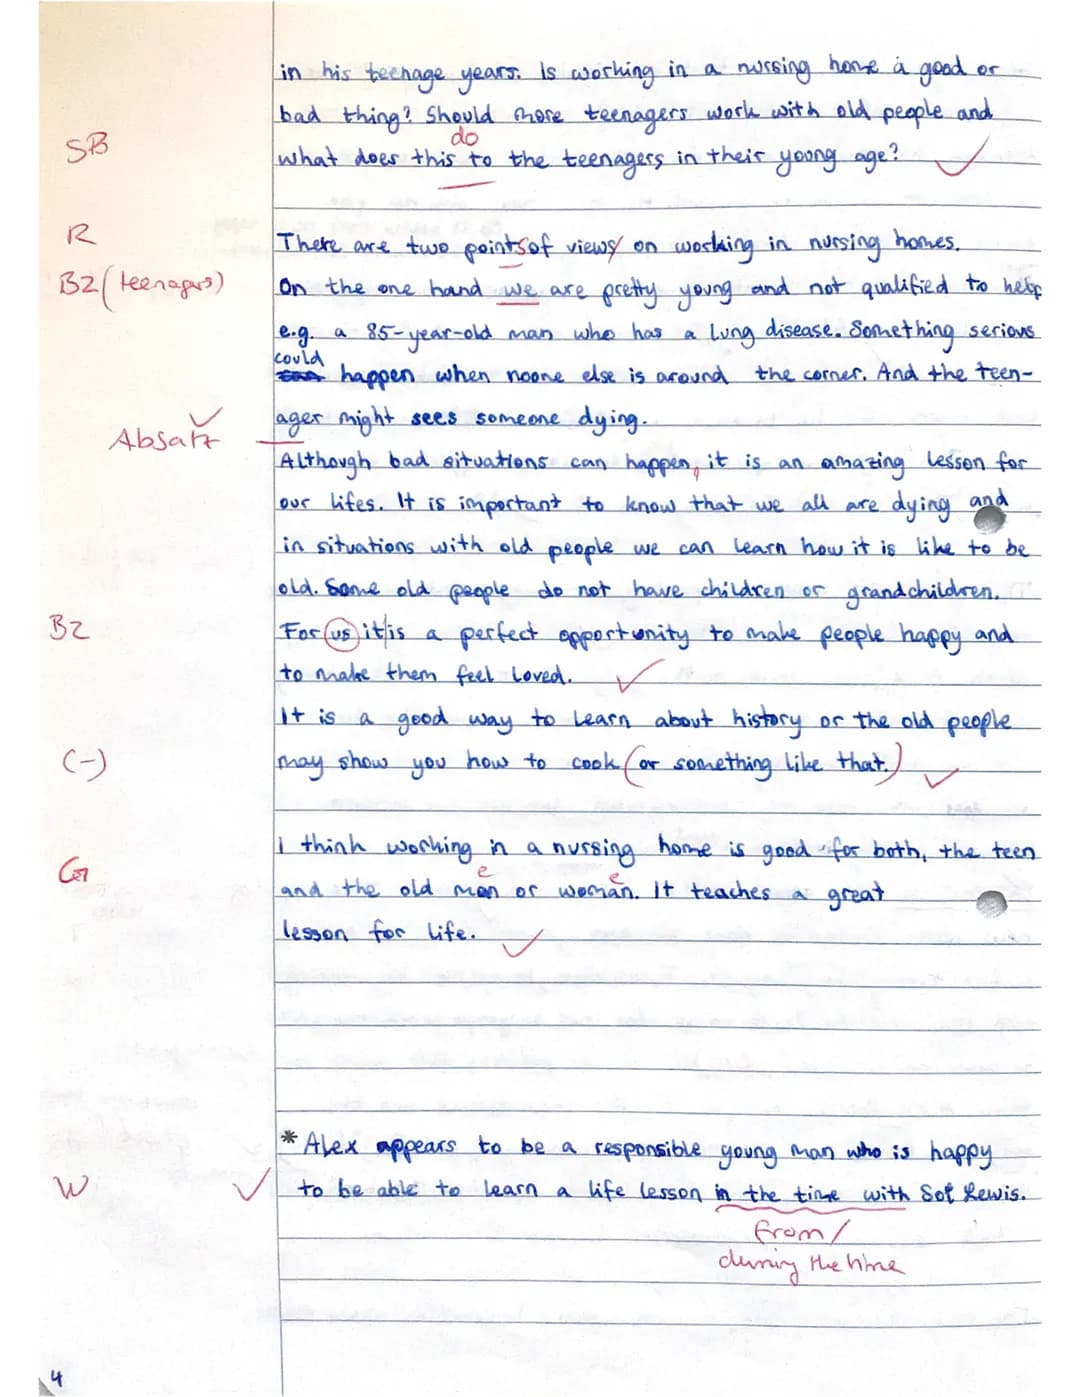 in his teenage years. Is working in a nursing home a good or
bad thing? Should more teenagers work with old people and
do
SB
what does this to the teenagers in their young age? ✓
R
There are two points of views on working in nursing homes.
BZ (teenagers)
On the one hand we are pretty young and not qualified to help
e.g. a 85-year-old man who has a lung disease. Something serious
could
happen when noone else is around the corner. And the teen-
ager might sees someone dying.
Absatz ✓
Although bad situations can happen, it is an amazing lesson for
our lifes. It is important to know that we all are dying and
in situations with old people we can learn how it is like to be
old. Some old people do not have children or grandchildren.
BZ
For us it is a perfect opportunity to make people happy and
to make them feel loved. ✓
It is a good way to learn about history or the old people
(-)
may show you how to cook (or something like that.) ✓
I think working in a nursing home is good for both, the teen
Gr
e e
and the old man or woman. It teaches a great
lesson for life. ✓
* Alex appears to be a responsible young man who is happy
W ✓
to be able to learn a life lesson in the time with Sol Lewis.
from/
during the time
4